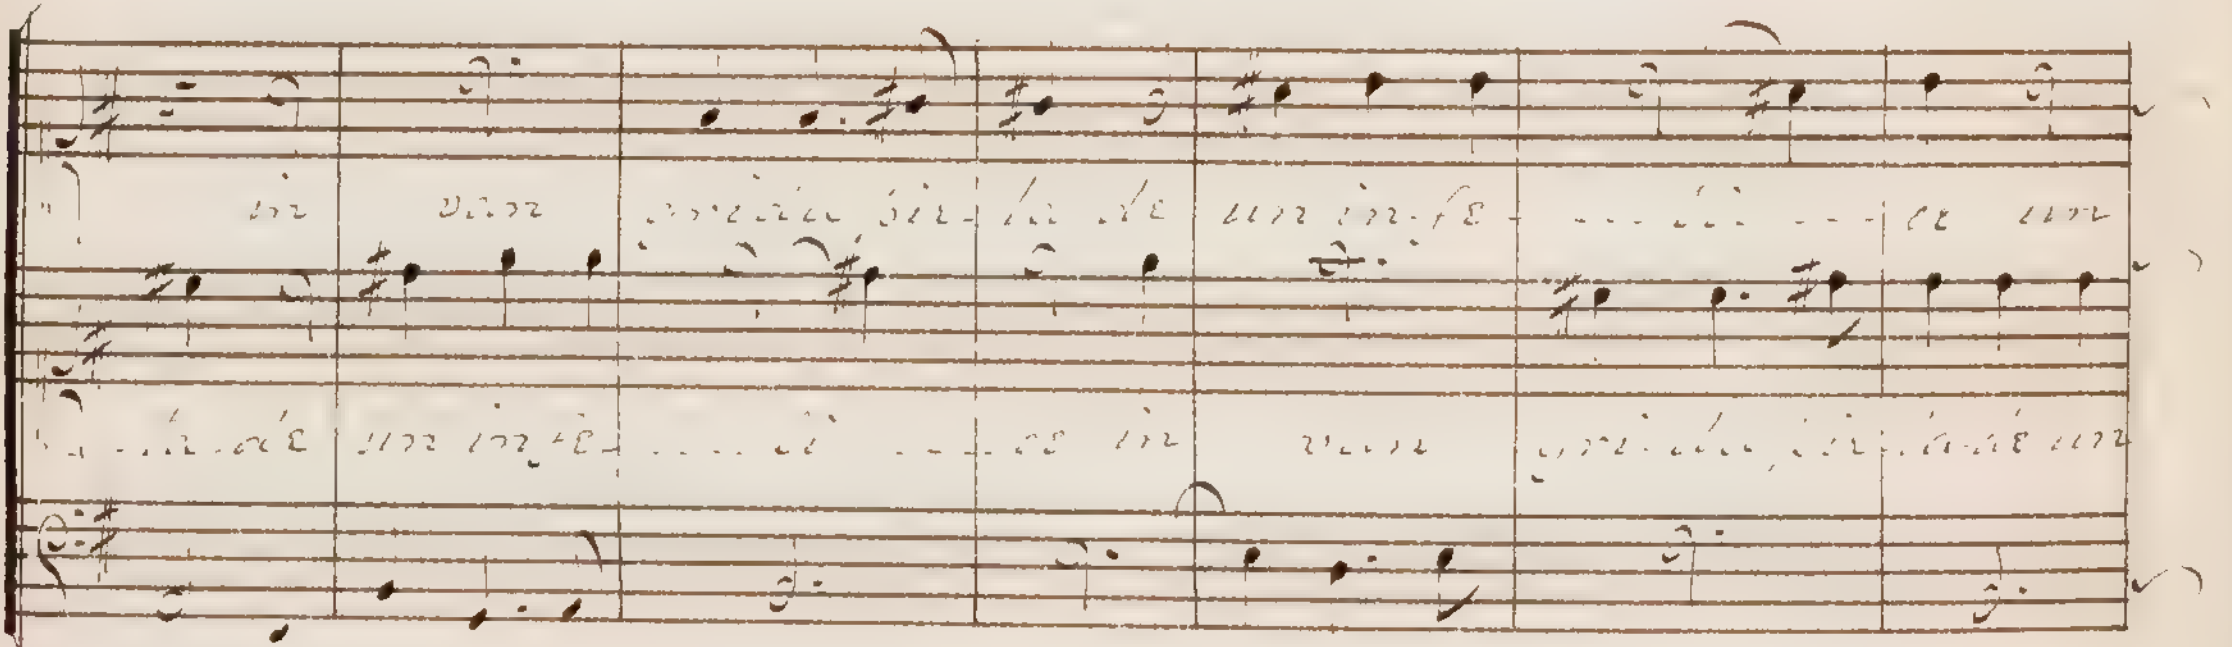 in van grida, sin-la de un in-fe- - - - li - - - ce un
- - la de un in-fe- - - - - li - - - ce in van gri-da, sin-la de un